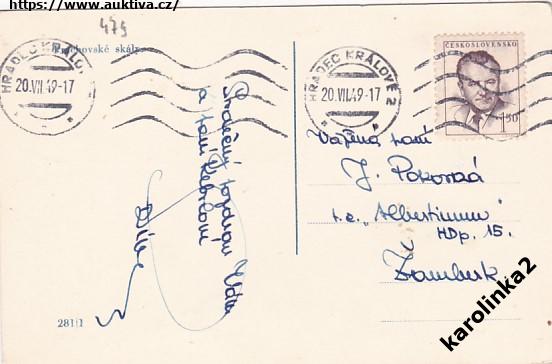 https://www.auktiva.cz/
475
Prachovské skály
HRADEC KRÁLOVÉ 2
20.VII.49-17
HRADEC KRÁLOVÉ 2
20.VII.49-17
ČESKOSLOVENSKO
1.50
Srdečný pozdrav
a paní
Vážená paní
J. Pokorná
t.č. „Albertinum"
HDp. 15.
Žamberk.
2811
karolinka2